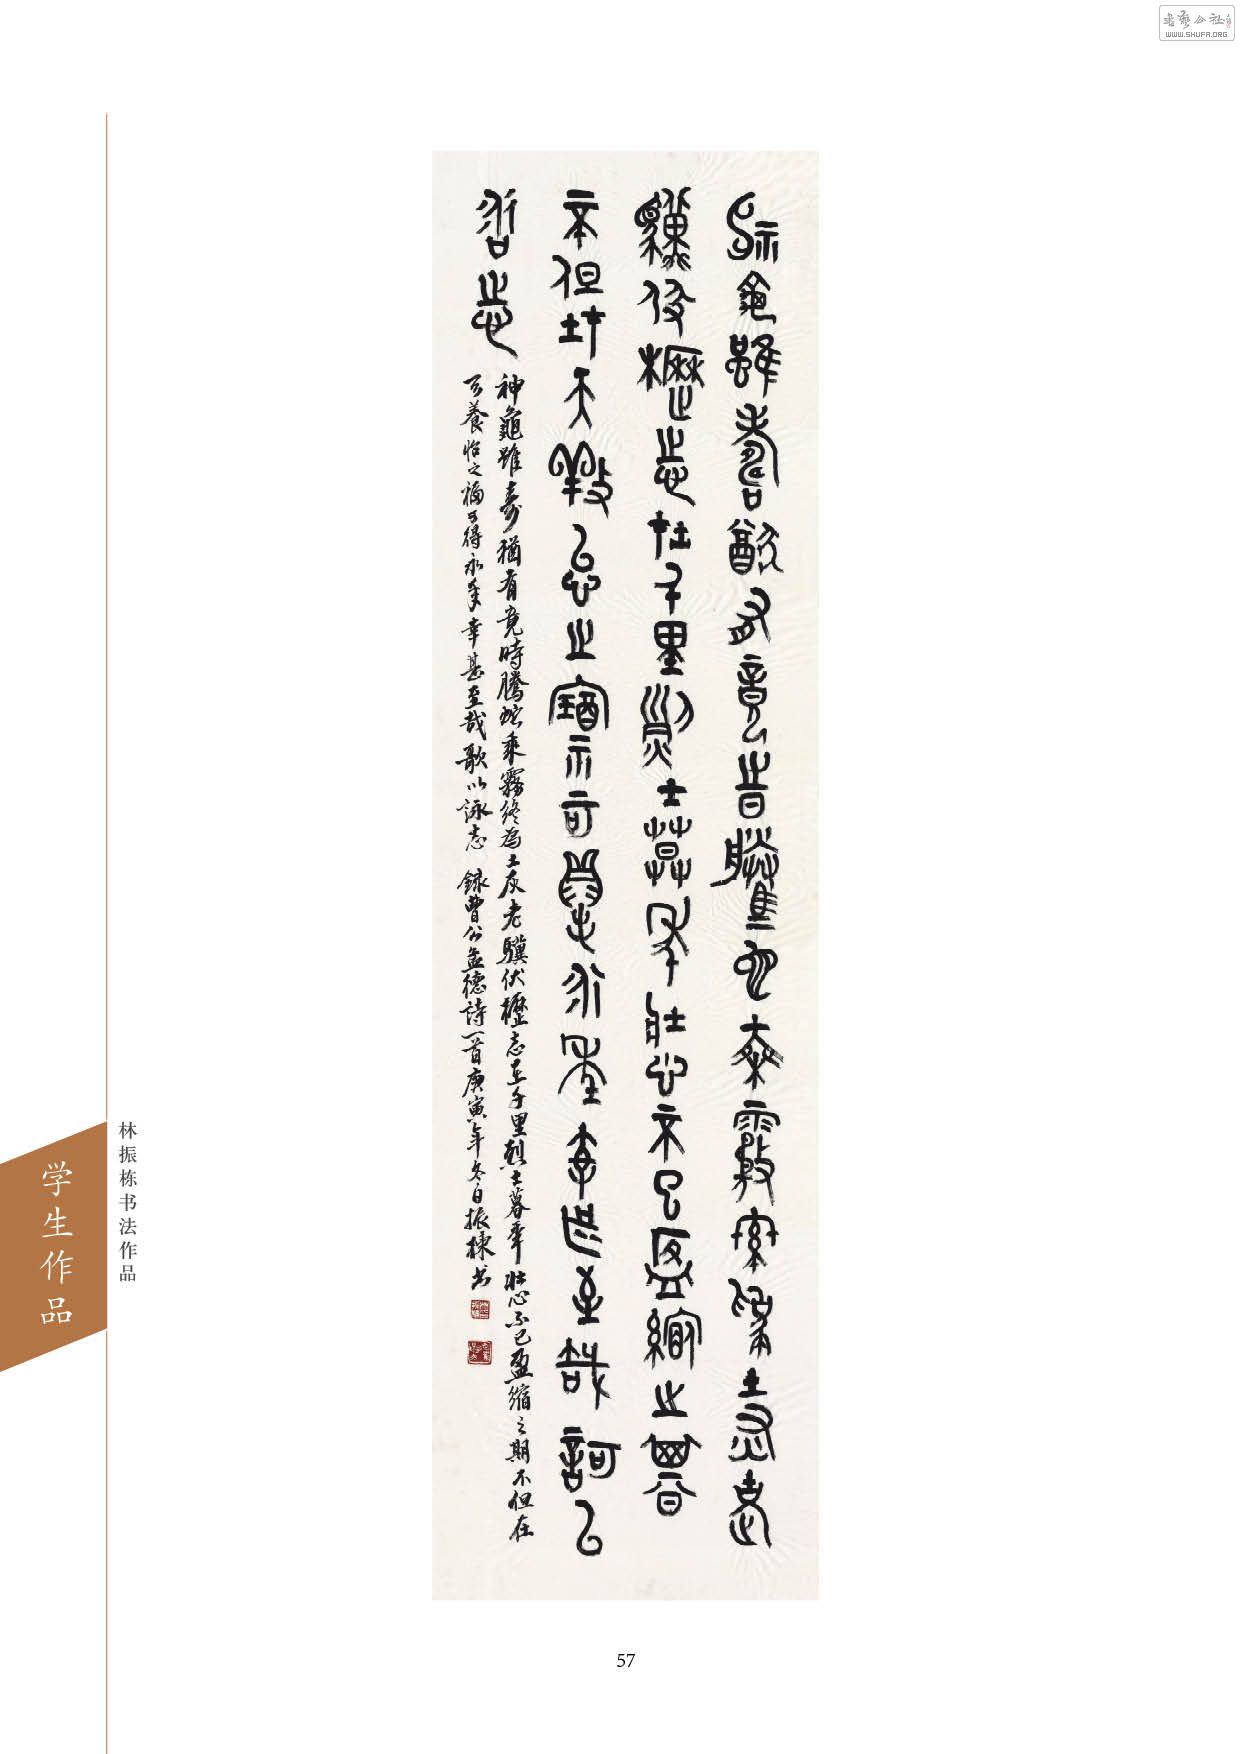 书艺公社
WWW.SHUFA.ORG
神龜雖壽猶有竟時騰蛇乘霧終為土灰老
驥伏櫪志在千里烈士暮年壯心不已盈縮之期
不但在天養怡之福可得永年幸甚至哉歌以
詠志
神龜雖壽猶有竟時騰蛇乘霧終為土灰老驥伏櫪志在千里烈士暮年壯心不已盈縮之期不但在
天養怡之福可得永年幸甚至哉歌以詠志 錄曹公孟德詩一首庚寅年冬日振棟书
林振栋书法作品
学生作品
57